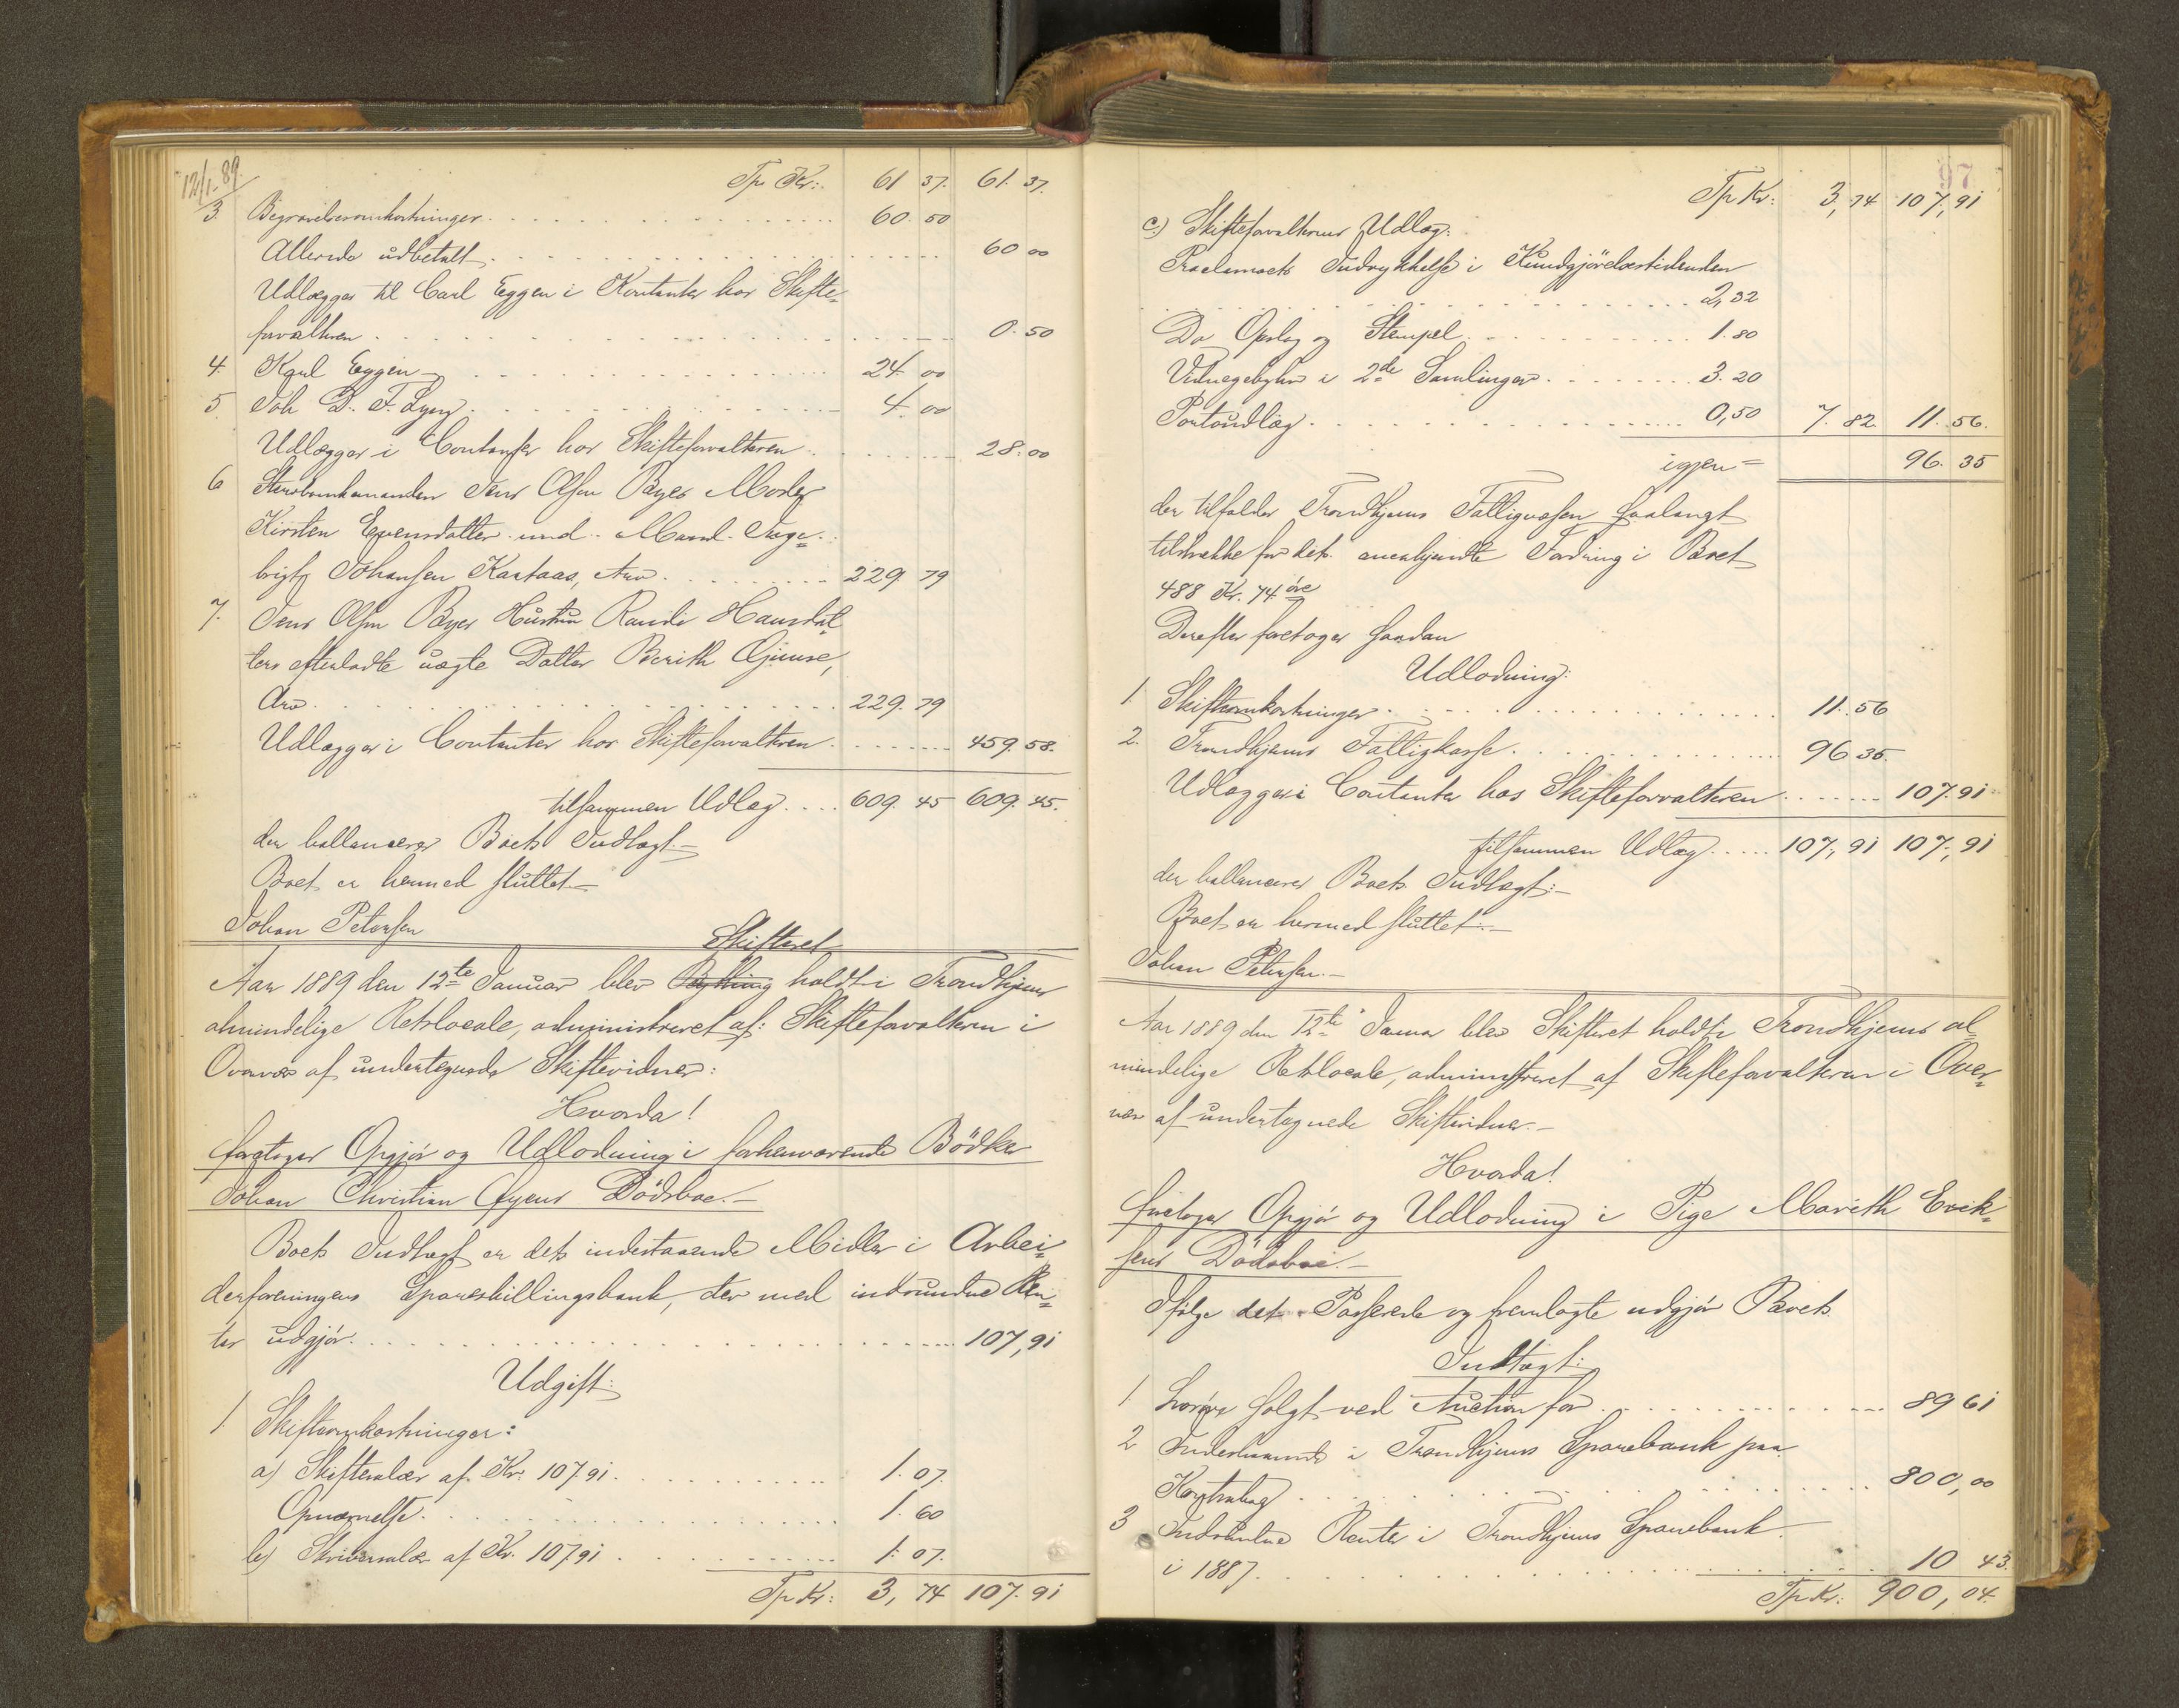 12/1-89.
Tp Kr: 61 37. 61. 37.
3 Begravelsesomkostninger 60. 50
Allerede udbetalt 60 00
Udlægges til Carl Eggen i Kontanter hos Skifte-
forvalteren 0. 50
4. Karl Eggen 24. 00
5. Joh D. F. Lyng 4. 00
Udlægges i Contanter hos Skifteforvalteren 28. 00
6 Jens Olsen Byes Moder
Kirsten Evensdatter med Mand Inge-
brigt Johansen Kaataas, Arv 229. 79
7. Jens Olsen Byes Hustru Randi Hansdat-
ters efterladte uægte Datter Berith Gjeinse,
Arv 229. 79
Udlægges i Contanter hos Skifteforvalteren 459. 58.
tilsammen Udlæg 609. 45 609. 45.
der ballancerer Boets Indtægt.-
Boet er hermed sluttet.-
Johan Petersen
Skifteret
Aar 1889 den 12te Januar blev Bything holdt i Trondhjems
almindelige Retslocale, administreret af: Skifteforvalteren i
Overvær af undertegnede Skiftevidner:
Hvorda!
foretoges Opgjör og Udlodning i forhenværende Bödker
Johan Christian Öyens Dödsboe.-
Boets Indtægt er dets indestaaende Midler i Arbei-
derforeningens Spareskillingsbank, der med indvundne Ren-
ter udgjör 107, 91
Udgift:
1 Skifteomkostninger:
a) Skiftesalær af Kr. 107. 91 1. 07.
Opnævnelse 1. 60
b) Skriversalær af Kr. 107. 91 1. 07.
Tp Kr: 3, 74 107. 91
97
Tp Kr: 3, 74 107, 91
c.) Skifteforvalterens Udlæg:
Proclamaets Indrykkelse i Kundgjörelsestidenden
2, 32
Do Opslag og Stempel 1. 80
Vidnegebyhr i 2de Samlinger 3. 20
Portoudlæg 0, 50 7. 82 11. 56.
igjen = 96. 35
der tilfalder Trondhjems Fattigvæsen saalangt
tilstrække for dets anerkjendte Fordring i Boet
488 Kr. 74 öre
Derefter foretoges saadan
Udlodning:
1. Skifteomkostninger 11. 56
2. Trondhjems Fattigkasse 96 35.
Udlægges i Contanter hos Skifteforvalteren 107. 91
tilsammen Udlæg 107, 91 107, 91
der ballancerer Boets Indtægt:-
Boet er hermed sluttet:-
Johan Petersen.-
Aar 1889 den 12te Januar blev Skifteret holdt i Trondhjems al-
mindelige Retslocale, administreret af Skifteforvalteren i Over-
vær af undertegnede Skiftevidner.-
Hvorda!
foretoges Opgjör og Udlodning i Pige Marith Erik-
sens Dödsboe.-
Ifölge det Passerede og fremlagte udgjör Boets
Indtægt:
1 Lösöre solgt ved Auction for 89 61
2 Indestaaende i Trondhjems Sparebank paa
Contrabog 800, 00
3 Indvundne Renter i Trondhjems Sparebank
i 1887 10 43.
Tp Kr: 900, 04.